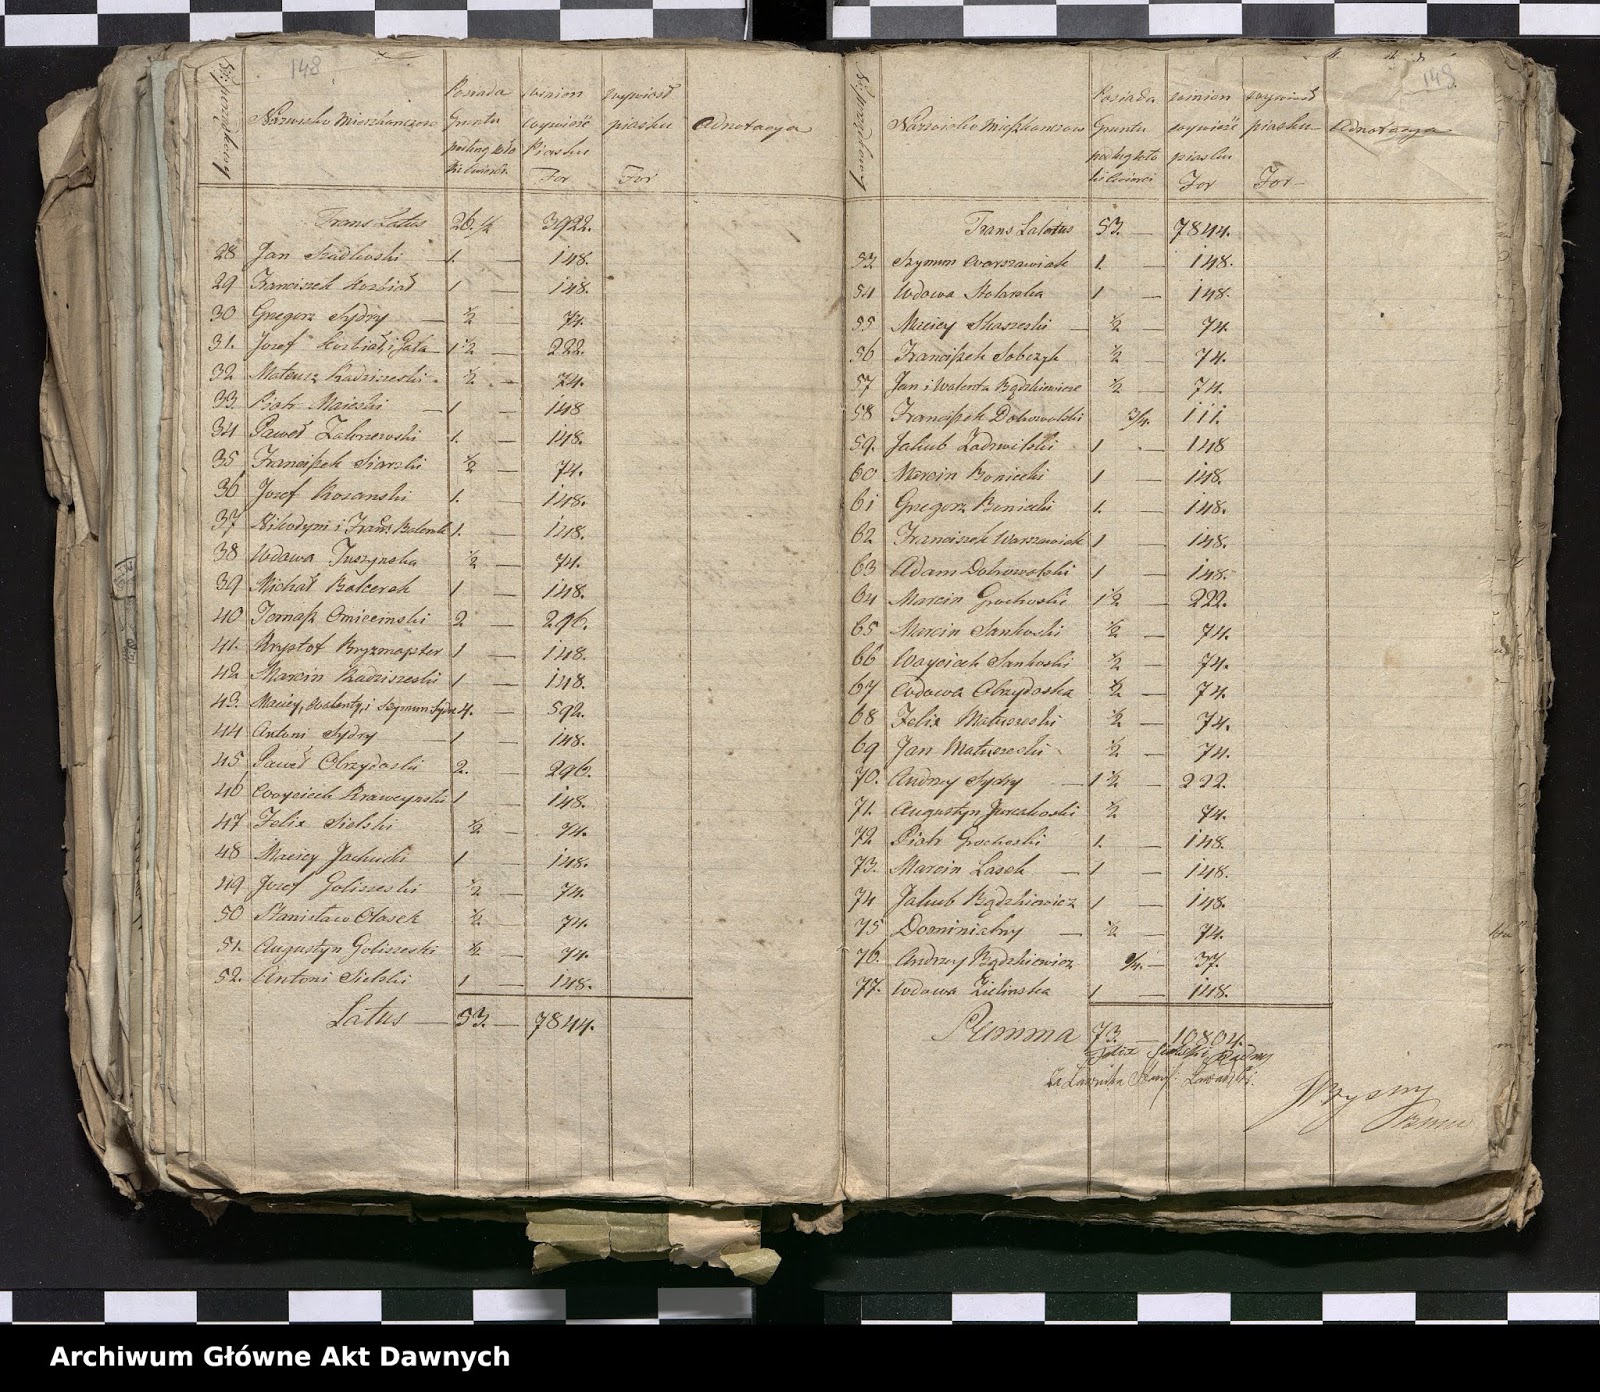 148
Nr porządkowy
Nazwisko Mieszkańców
Posiada Gruntu podług
winien wywieść Piasku For
wywiosł piasku For
Adnotacya
Trans Latus 26 1/2 3922.
28 Jan Szadkoski 1. — 148.
29 Franciszek Kozbiał 1 — 148.
30 Grzegorz Sydry — 1/2 — 74.
31. Jozef Kozbiał, i Gała — 1 1/2 — 222.
32 Mateusz Radziszeski 1/2 — 74.
33. Piotr Maieski — 1 — 148
34 Paweł Zakrzewski 1. — 148.
35 Franciszek Siarski 1/2 — 74.
36 Jozef Rozanski 1. — 148.
37 Nikodym i Franc 1. — 148.
38 Wdowa Juszynska 1/2 — 74.
39 Michał Balcerak 1 — 148.
40 Tomasz Omiecinski 2 — 296.
41. Krysztof Bryzmajster 1 — 148.
42 Marcin Radziszeski 1 — 148.
43. Maciey, Walenty, i Szymon Sydry 4. — 592.
44 Antoni Sydry — 1 — 148.
45 Paweł Obrzydoski 2. — 296.
46 Woyciech Krawczynski 1 — 148.
47 Felix Sielski 1/2 — 74.
48 Maciey Jachucki 1 — 148.
49 Jozef Goliszeski 1/2 — 74.
50 Stanisław Olasek 1/2 — 74.
51. Augustyn Goliszeski 1/2 — 74.
52. Antoni Sielski 1 — 148.
Latus — 53. — 7844.
149
Nr porządkowy
Nazwisko Mieszkańcow
Posiada Gruntu podług
winien wywieść piasku For
wywiosł piasku For
Adnotacya
Trans Latus 53. — 7844.
53 Szymon Warszawiak 1. — 148.
54 Wdowa Stolarska 1 — 148.
55 Maciey Skaszeski — 1/2 — 74.
56 Franciszek Sobczyk 1/2 — 74.
57 Jan i Walenta Bądzkiewicze 1/2 — 74.
58 Franciszek Dobrowolski 3/4. — 111.
59. Jakub 1 — 148
60 Marcin Boniecki 1 — 148.
61 Grzegorz Boniecki 1. — 148.
62 Franciszek Warszawiak 1 — 148.
63 Adam Dobrowolski 1 — 148.
64 Marcin Grochoski 1 1/2 — 222.
65 Marcin Jankoski 1/2 — 74.
66 Woyciech Jankoski 1/2 — 74.
67 Wdowa Obrzydoska 1/2 — 74.
68 Felix Matuszeski 1/2 — 74.
69 Jan Matuszeski 1/2 — 74.
70. Andrzy Sydry — 1 1/2 — 222.
71. Augustyn 1/2 74.
72 Piotr Grochoski 1. — 148.
73. Marcin Lasek — 1 — 148.
74 Jakub Bądzkiewicz 1 — 148.
75 Dominialny — 1/2 — 74.
76. Andrzy Bądzkiewicz — 37.
77. Wdowa Zielinska 1 — 148.
Summa 73. — 10804.
Felix Sielski Radny
Archiwum Główne Akt Dawnych